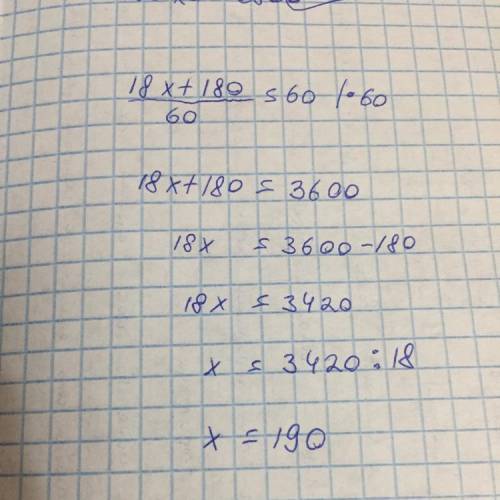 18x+180 = 60 |·60
60
18x+180 = 3600
18x = 3600-180
18x = 3420
x = 3420:18
x = 190